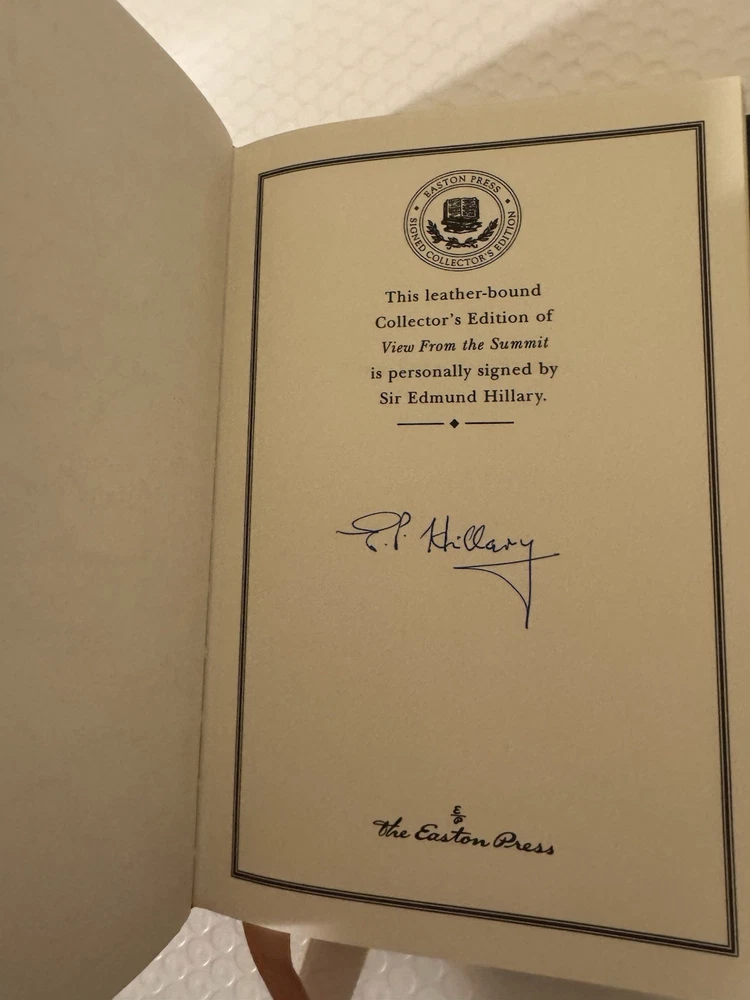 EASTON PRESS
SIGNED COLLECTOR'S EDITION
This leather-bound
Collector's Edition of
View From the Summit
is personally signed by
Sir Edmund Hillary.
E.P. Hillary
E
P
the Easton Press